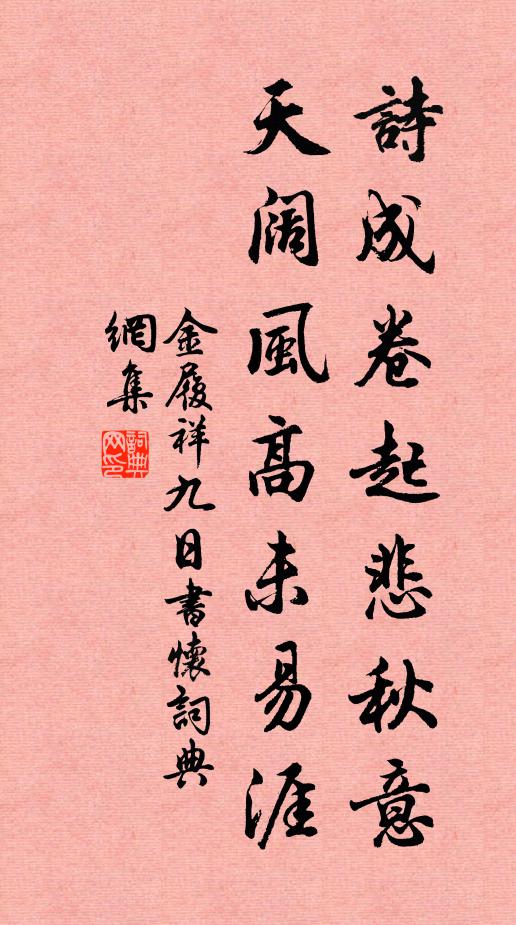 詩成卷起悲秋意
天闊風高未易涯
金履祥九日書懷詞典
網集
詞典
網印